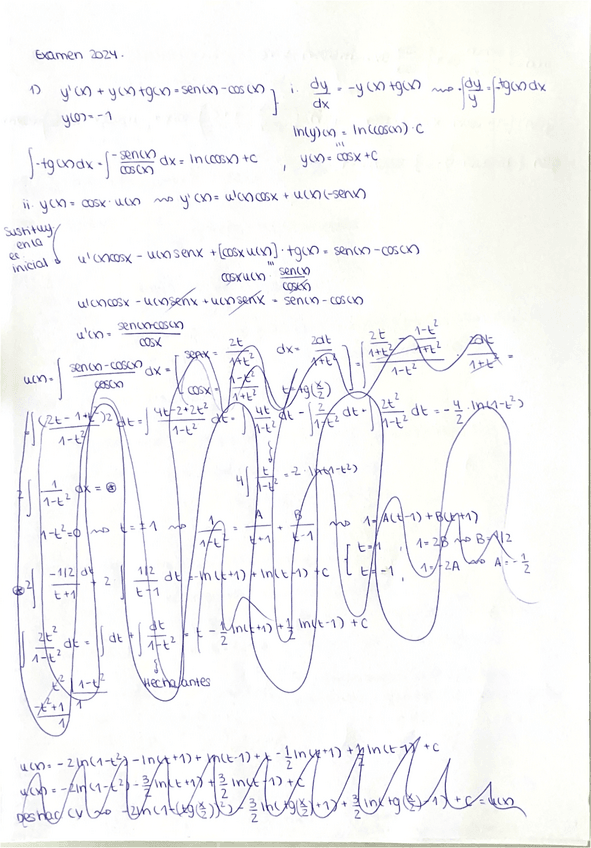 Examen 2024.
1) y'(x) + y(x) tg(x) = sen(x) - cos(x) ] i. dy/dx = -y(x) tg(x) ⇝ ∫ dy/y = ∫ -tg(x) dx
y(0) = -1
ln(y)(x) = ln(cos(x)) · C
∫ -tg(x) dx = ∫ -sen(x)/cos(x) dx = ln(cosx) + C , y(x) = cosx + C
ii. y(x) = cosx · u(x) ⇝ y'(x) = u'(x) cosx + u(x) (-senx)
Sustituy
en la
ec
inicial
u'(x) cosx - u(x) senx + [cosx u(x)] · tg(x) = sen(x) - cos(x)
cosx u(x) · sen(x)/cos(x)
u'(x) cosx - u(x) senx + u(x) senx = sen(x) - cos(x)
u'(x) = sen(x)-cos(x)/cosx
u(x) = ∫ sen(x)-cos(x)/cos(x) dx = [ senx = 2t/1+t² dx = 2dt/1+t² cosx = 1-t²/1+t² t = tg(x/2) ] = ∫ 2t/1+t² - 1-t²/1+t² / 1-t² · 2dt/1+t² =
= ∫ (2t - 1+t²)2/1-t² dt = ∫ 4t-2+2t²/1-t² dt = ∫ 4t/1-t² dt - ∫ 2/1-t² dt + ∫ 2t²/1-t² dt = -4/2 · ln(1-t²)
4 ∫ t/1-t² = -2 · ln(1-t²)
2 ∫ 1/1-t² dx = ⊛
1-t²=0 ⇝ t = ±1 ⇝ 1/1-t² = A/t+1 + B/t-1 ⇝ 1 = A(t-1) + B(t+1)
{ t=1 , 1=2B ⇝ B=1/2
t=-1 , 1=-2A ⇝ A=-1/2
⊛ 2 ∫ -1/2/t+1 dt + 2 ∫ 1/2/t-1 dt = -ln(t+1) + ln(t-1) + C
∫ 2t²/1-t² dt = ∫ dt + ∫ dt/1-t² = t - 1/2 ln(t+1) + 1/2 ln(t-1) + C
Hecha antes
t² | 1-t²
-t²+1 1
1
u(x) = -2ln(1-t²) - ln(t+1) + ln(t-1) + t - 1/2 ln(t+1) + 1/2 ln(t-1) + C
u(x) = -2ln(1-t²) - 3/2 ln(t+1) + 3/2 ln(t-1) + C
Deshac CV ⇝ -2ln(1-(tg(x/2))²) - 3/2 ln(tg(x/2)+1) + 3/2 ln(tg(x/2)-1) + C = u(x)